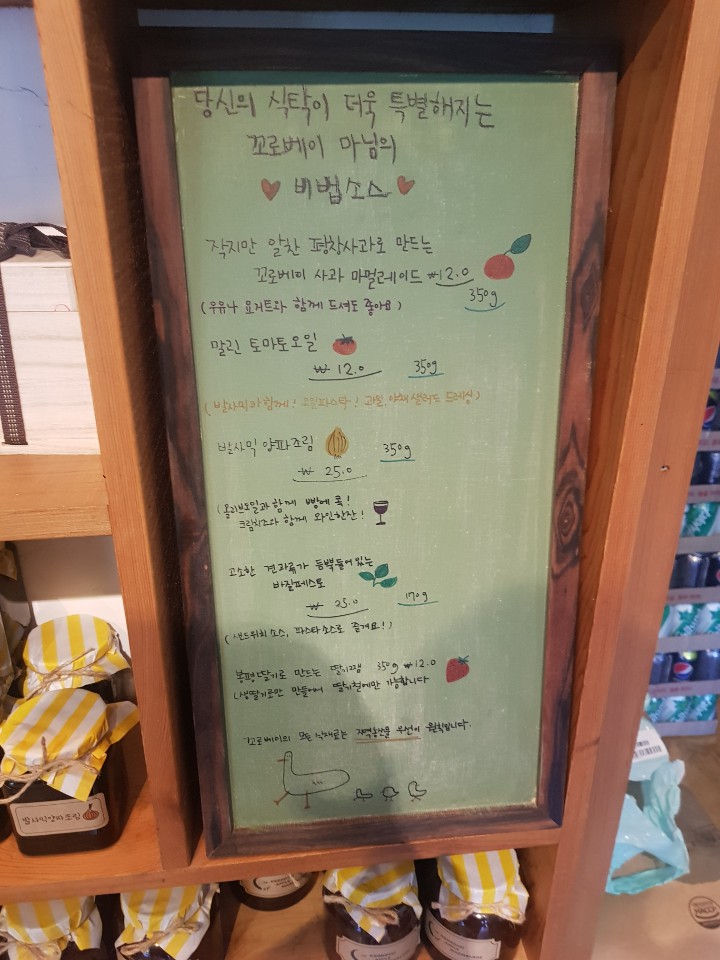 당신의 식탁이 더욱 특별해지는
꼬로베이 마님의
비법소스
작지만 알찬 평창사과로 만드는
꼬로베이 사과 마멀레이드 ₩12.0
350g
(우유나 요거트와 함께 드셔도 좋아요)
말린 토마토오일
₩ 12.0 350g
(발사믹과 함께! 오일파스타! 과일.야채 샐러드 드레싱)
발사믹 양파조림 350g
₩ 25.0
(올리브오일과 함께 빵에 콕!
크림치즈와 함께 와인한잔!
고소한 견과류가 듬뿍들어있는
바질페스토
₩ 25.0 170g
(샌드위치 소스, 파스타 소스로 즐겨요!)
봉평딸기로 만드는 딸기쨈 350g ₩12.0
생딸기로만 만들어서 딸기철에만 가능합니다
꼬로베이의 모든 식재료는 지역농산물 우선이 원칙입니다.
발사믹양파조림